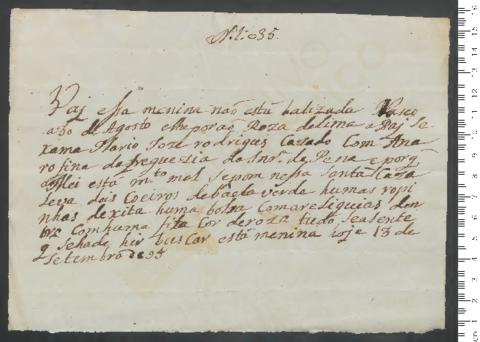 N. 1:035
Vaj esta menina não está batizada Nasceo
a 30 de Agosto e heporá Roza de Lima o Paj se
xama Mario Joze rodrigues Cazado Com Ana
rofina da freguezia da Snr.a da Pena e porq
a Mei está m.to mal Sepoem nessa Santa Caza
Leva dois Coeiros de baeta verde humas ropi
nhas de xita huma bolsa Com a reliquias den
tro Com huma fita Cor de roza tudo Seasente
q Sehade hir buscar está menina ioje 13 de
Setembro de 95